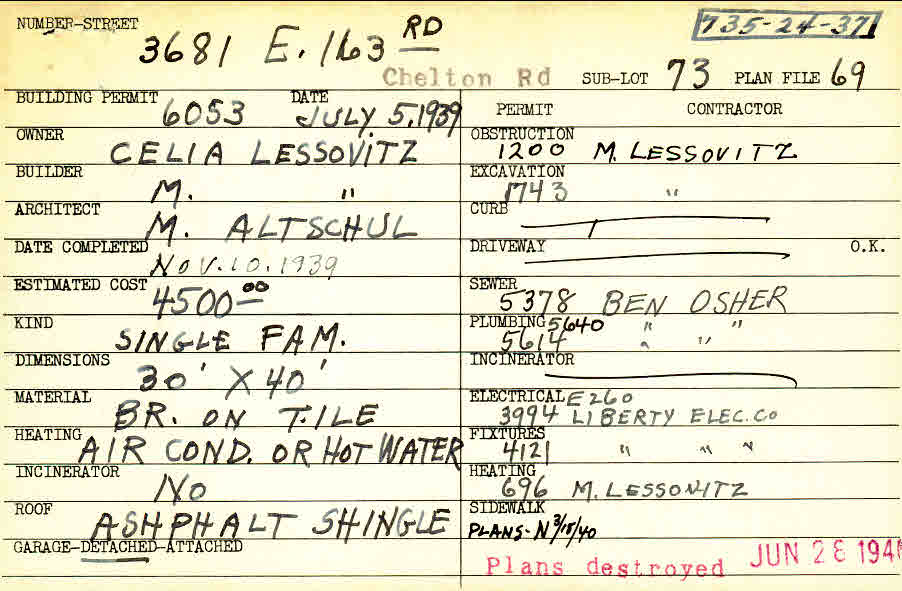 NUMBER-STREET
3681 E. 163 RD
735-24-37
Chelton Rd
SUB-LOT 73 PLAN FILE 69
BUILDING PERMIT 6053 DATE JULY 5, 1939
OWNER CELIA LESSOVITZ
BUILDER M. "
ARCHITECT M. ALTSCHUL
DATE COMPLETED NOV. 10. 1939
ESTIMATED COST 4500 00
KIND SINGLE FAM.
DIMENSIONS 30' X 40'
MATERIAL BR. ON TILE
HEATING AIR COND. OR HOT WATER
INCINERATOR NO
ROOF ASHPHALT SHINGLE
GARAGE-DETACHED-ATTACHED
PERMIT CONTRACTOR
OBSTRUCTION 1200 M. LESSOVITZ
EXCAVATION 1743 "
CURB
DRIVEWAY O.K.
SEWER 5378 BEN OSHER
PLUMBING 5640 " "
5614 " "
INCINERATOR
ELECTRICAL E260
3994 LIBERTY ELEC. CO
FIXTURES 4121 " " "
HEATING 696 M. LESSOVITZ
SIDEWALK
PLANS-N 3/15/40
Plans destroyed JUN 26